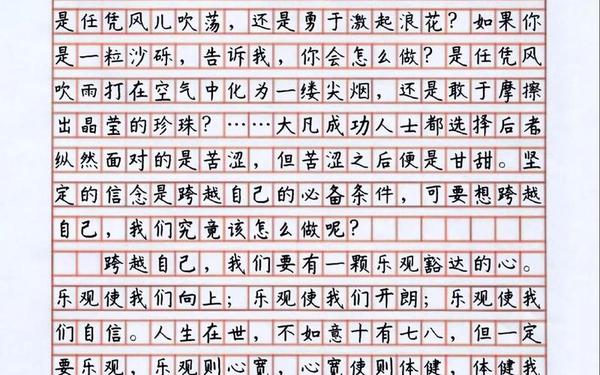 是任凭风儿吹荡，还是勇于激起浪花？如果你
是一粒沙砾，告诉我，你会怎么做？是任凭风
吹雨打在空气中化为一缕尖烟，还是敢于摩擦
出晶莹的珍珠？……大凡成功人士都选择后者
纵然面对的是苦涩，但苦涩之后便是甘甜。坚
定的信念是跨越自己的必备条件，可要想跨越
自己，我们究竟该怎么做呢？
跨越自己，我们要有一颗乐观豁达的心。
乐观使我们向上；乐观使我们开朗；乐观使我
们自信。人生在世，不如意十有七八，但一定
要乐观，乐观则心宽，心宽使则体健，体健我